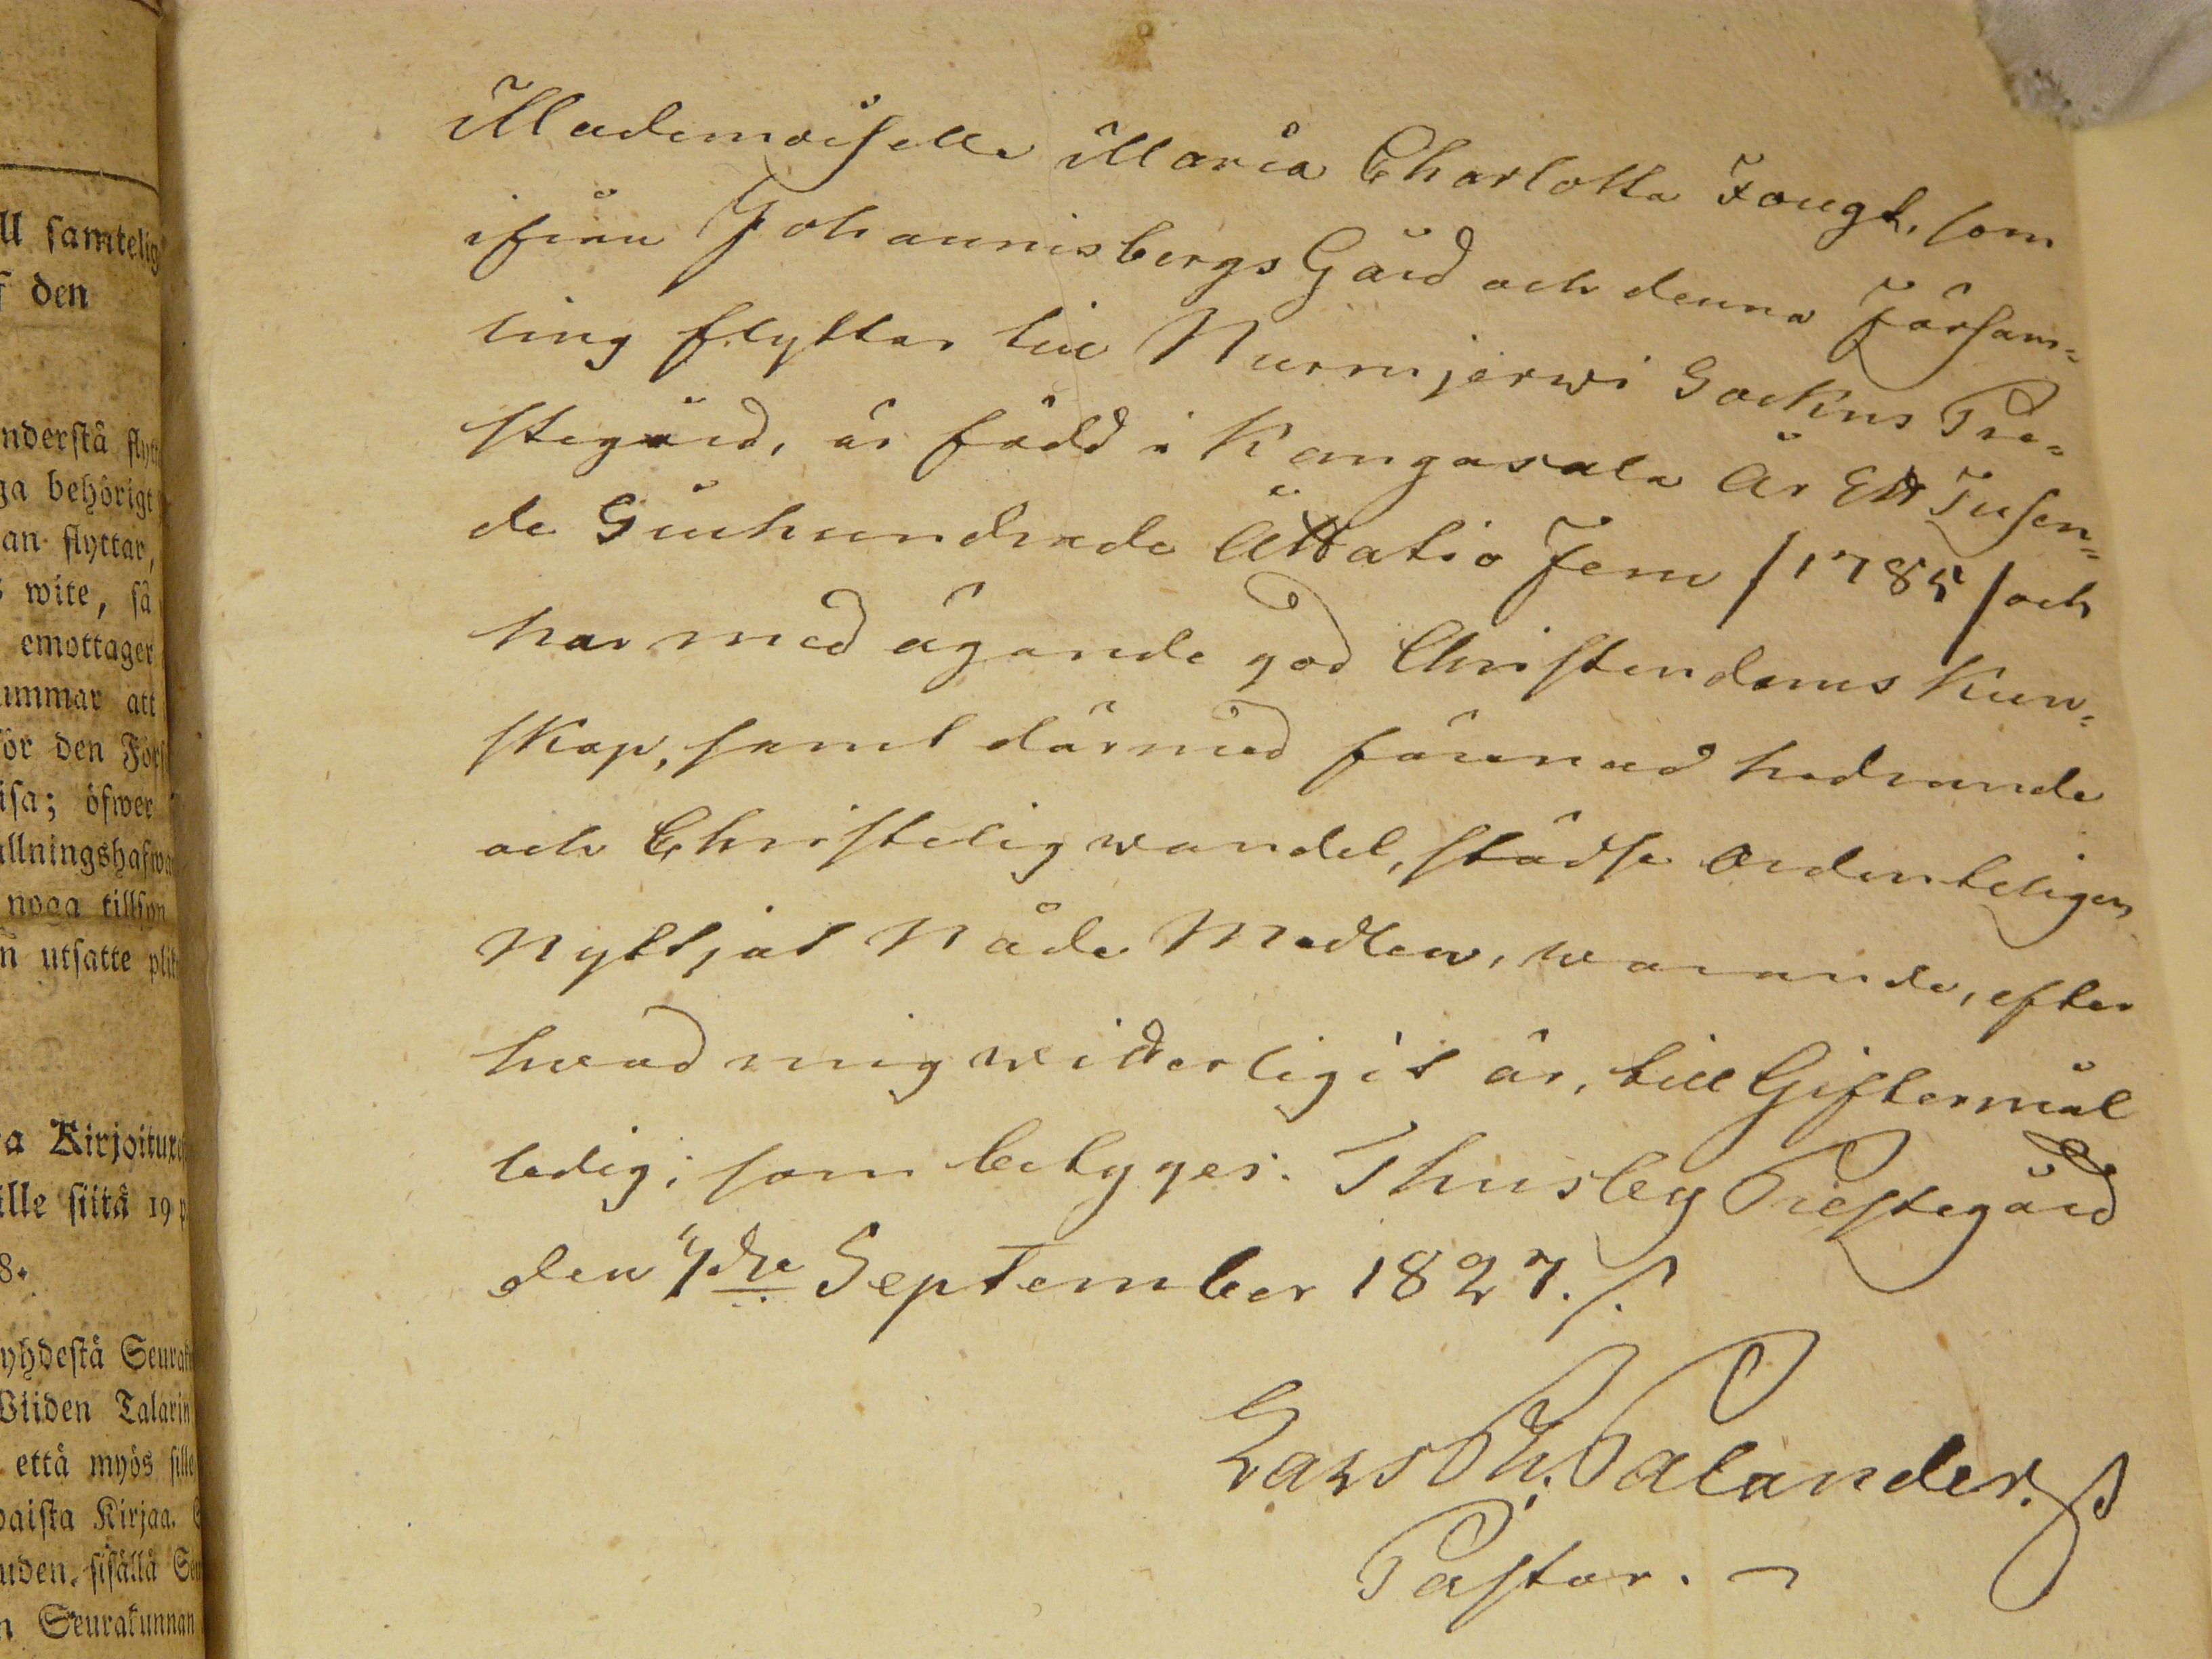 ll samtelig
f den
nderstå flytt
ga behörigt
an flyttar,
wite, så
emottager
ummar att
för den Förs
isa; öfwer
ållningshafwa
noga tillsyn
n utsatte plik
a Kirjoituxe
ille siitä 19 p
8.
yhdestä Seurak
Viiden Talarin
että myös sille
paista Kirjaa.
uden, sisällä Seu
n Seurakunnan
Mademoiselle Maria Charlotta Fougt, som
ifrån Johannisbergs Gård och denna Försam=
ling flyttar till Nurmjerwi Sockns Pre=
stegård, är född i Kangasala År Ett Tusen=
de Siuhundrade Åttatio Fem /1785/ och
har med ägande god Christendoms Kun=
skap, samt därmed förenad hedrande
och Christelig wandel, städse ordenteligen
Nyttjat Nåde Medlen, warande, efter
hvad mig witterligit är, till Giftermål
ledig; som betyges. Thusby Prestegård
den 7de September 1827./.
Lars Ph. Palander.
Pastor. ~